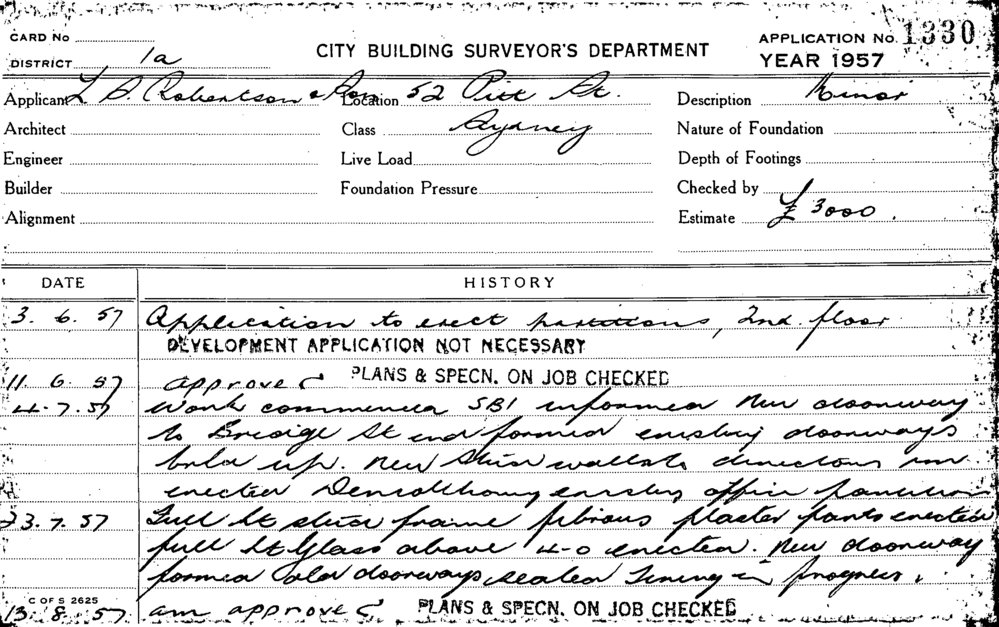 CARD No
CITY BUILDING SURVEYOR'S DEPARTMENT
APPLICATION No. 1330
DISTRICT 1a
YEAR 1957
Applicant L S. Robertson & Son Location 52 Pitt St. Description Minor
Architect Class Sydney Nature of Foundation
Engineer Live Load Depth of Footings
Builder Foundation Pressure Checked by
Alignment Estimate £ 3000.
DATE HISTORY
3. 6. 57 Application to erect partitions, 2nd. floor
DEVELOPMENT APPLICATION NOT NECESSARY
11 6. 57 approved PLANS & SPECN. ON JOB CHECKED
4.7.57 Work commenced SBI informed New doorway
to Bridge St end formed existing doorways
brkd up. New stud wall to directors rm
erected existing office partition
23.7.57 Full ht stud frame fibrous plaster parts erected
full ht Glass above 4-0 erected. New doorway
formed old doorways sealed Lining in progress.
C OF S 2625
13. 8. 57. am approved PLANS & SPECN. ON JOB CHECKED